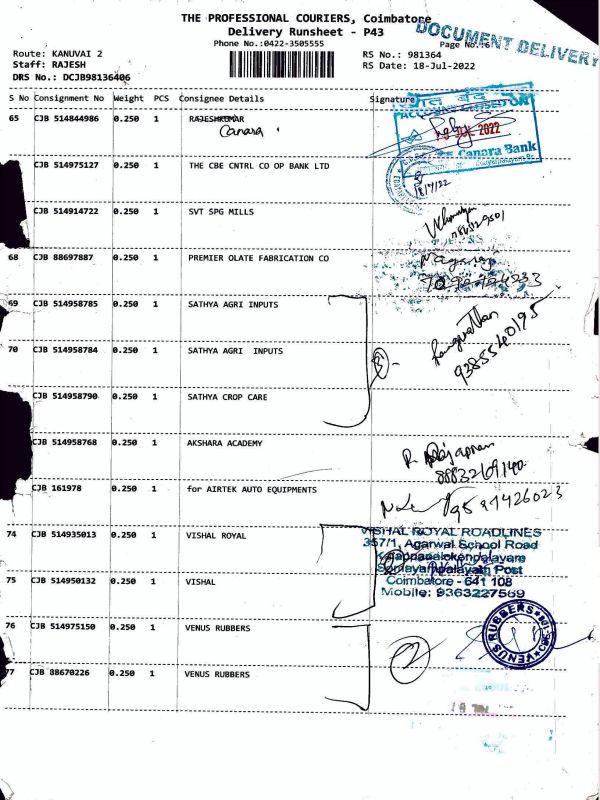 THE PROFESSIONAL COURIERS, Coimbatore
Delivery Runsheet - P43
DOCUMENT DELIVERY
Phone No.:0422-3505555
Page No.:6
Route: KANUVAI 2
RS No.: 981364
Staff: RAJESH
RS Date: 18-Jul-2022
DRS No.: DCJB98136406
S No Consignment No Weight PCS Consignee Details Signature
65 CJB 514844986 0.250 1 RAJESHKUMAR
Canara
JUL 2022
Canara Bank
CJB 514975127 0.250 1 THE CBE CNTRL CO OP BANK LTD
18/7/22
CJB 514914722 0.250 1 SVT SPG MILLS
68 CJB 88697887 0.250 1 PREMIER OLATE FABRICATION CO
69 CJB 514958785 0.250 1 SATHYA AGRI INPUTS
9385540195
70 CJB 514958784 0.250 1 SATHYA AGRI INPUTS
CJB 514958790 0.250 1 SATHYA CROP CARE
CJB 514958768 0.250 1 AKSHARA ACADEMY
8883269140
CJB 161978 0.250 1 for AIRTEK AUTO EQUIPMENTS
74 CJB 514935013 0.250 1 VISHAL ROYAL
VISHAL ROYAL ROADLINES
357/1, Agarwal School Road
Somayampalayam Post
Coimbatore - 641 108
Mobile: 9363227569
75 CJB 514950132 0.250 1 VISHAL
76 CJB 514975150 0.250 1 VENUS RUBBERS
VENUS RUBBERS
77 CJB 88670226 0.250 1 VENUS RUBBERS